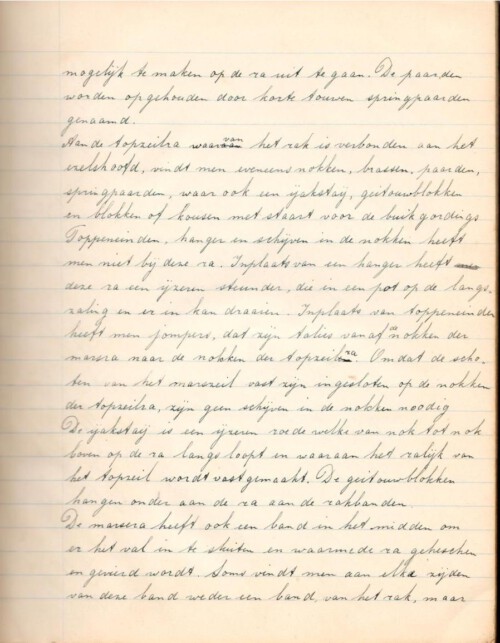 mogelijk te maken op de ra uit te gaan. De paarden
worden opgehouden door korte touwen springpaarden
genaamd.
Aan de topzeilra waarvan het rak is verbonden aan het
ezelshoofd, vindt men eveneens nokken, brassen, paarden,
springpaarden, waar ook een ijakstaij, geitouwblokken
en blokken of kousen met staart voor de buikgordings
Toppeneinden, hanger en schijven in de nokken heeft
men niet bij deze ra. Inplaats van een hanger heeft
deze ra een ijzeren steunder, die in een pot op de langs-
zaling en er in kan draaien. Inplaats van toppeneinden
heeft men jompers, dat zijn talies vanaf de nokken der
marsra naar de nokken der topzeilra. Omdat de scho-
ten van het marszeil vast zijn ingesloten op de nokken
der topzeilra, zijn geen schijven in de nokken noodig
De ijakstaij is een ijzeren roede welke van nok tot nok
boven op de ra langs loopt en waaraan het ralijk van
het topzeil wordt vastgemaakt. De geitouwblokken
hangen onder aan de ra aan de rakbanden.
De marsera heeft ook een band in het midden om
er het val in te sluiten en waarmede ra geheschen
en gevierd wordt. Soms vindt men aan elke zijden
van deze band weder een band, van het rak, maar